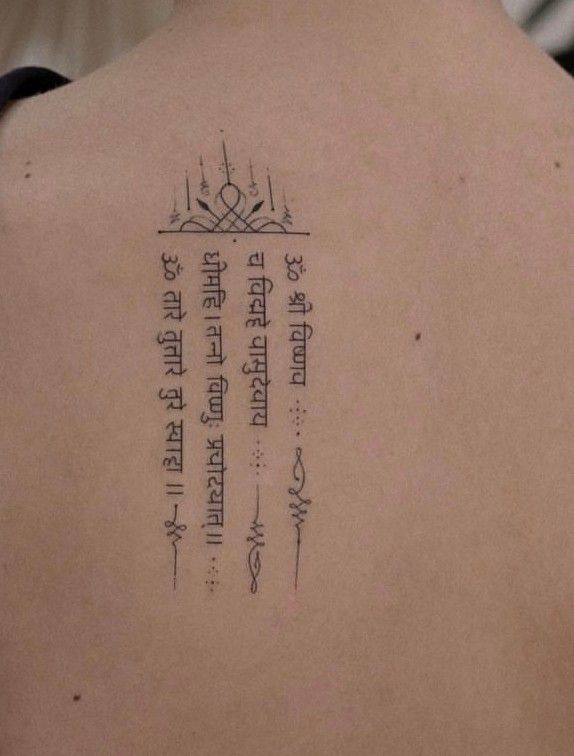 ॐ श्री विष्णाय
च विद्महे वासुदेवाय
धीमहि । तन्नो विष्णुः प्रचोदयात् ॥
ॐ तारे तुत्तारे तुरे स्वाहा ॥